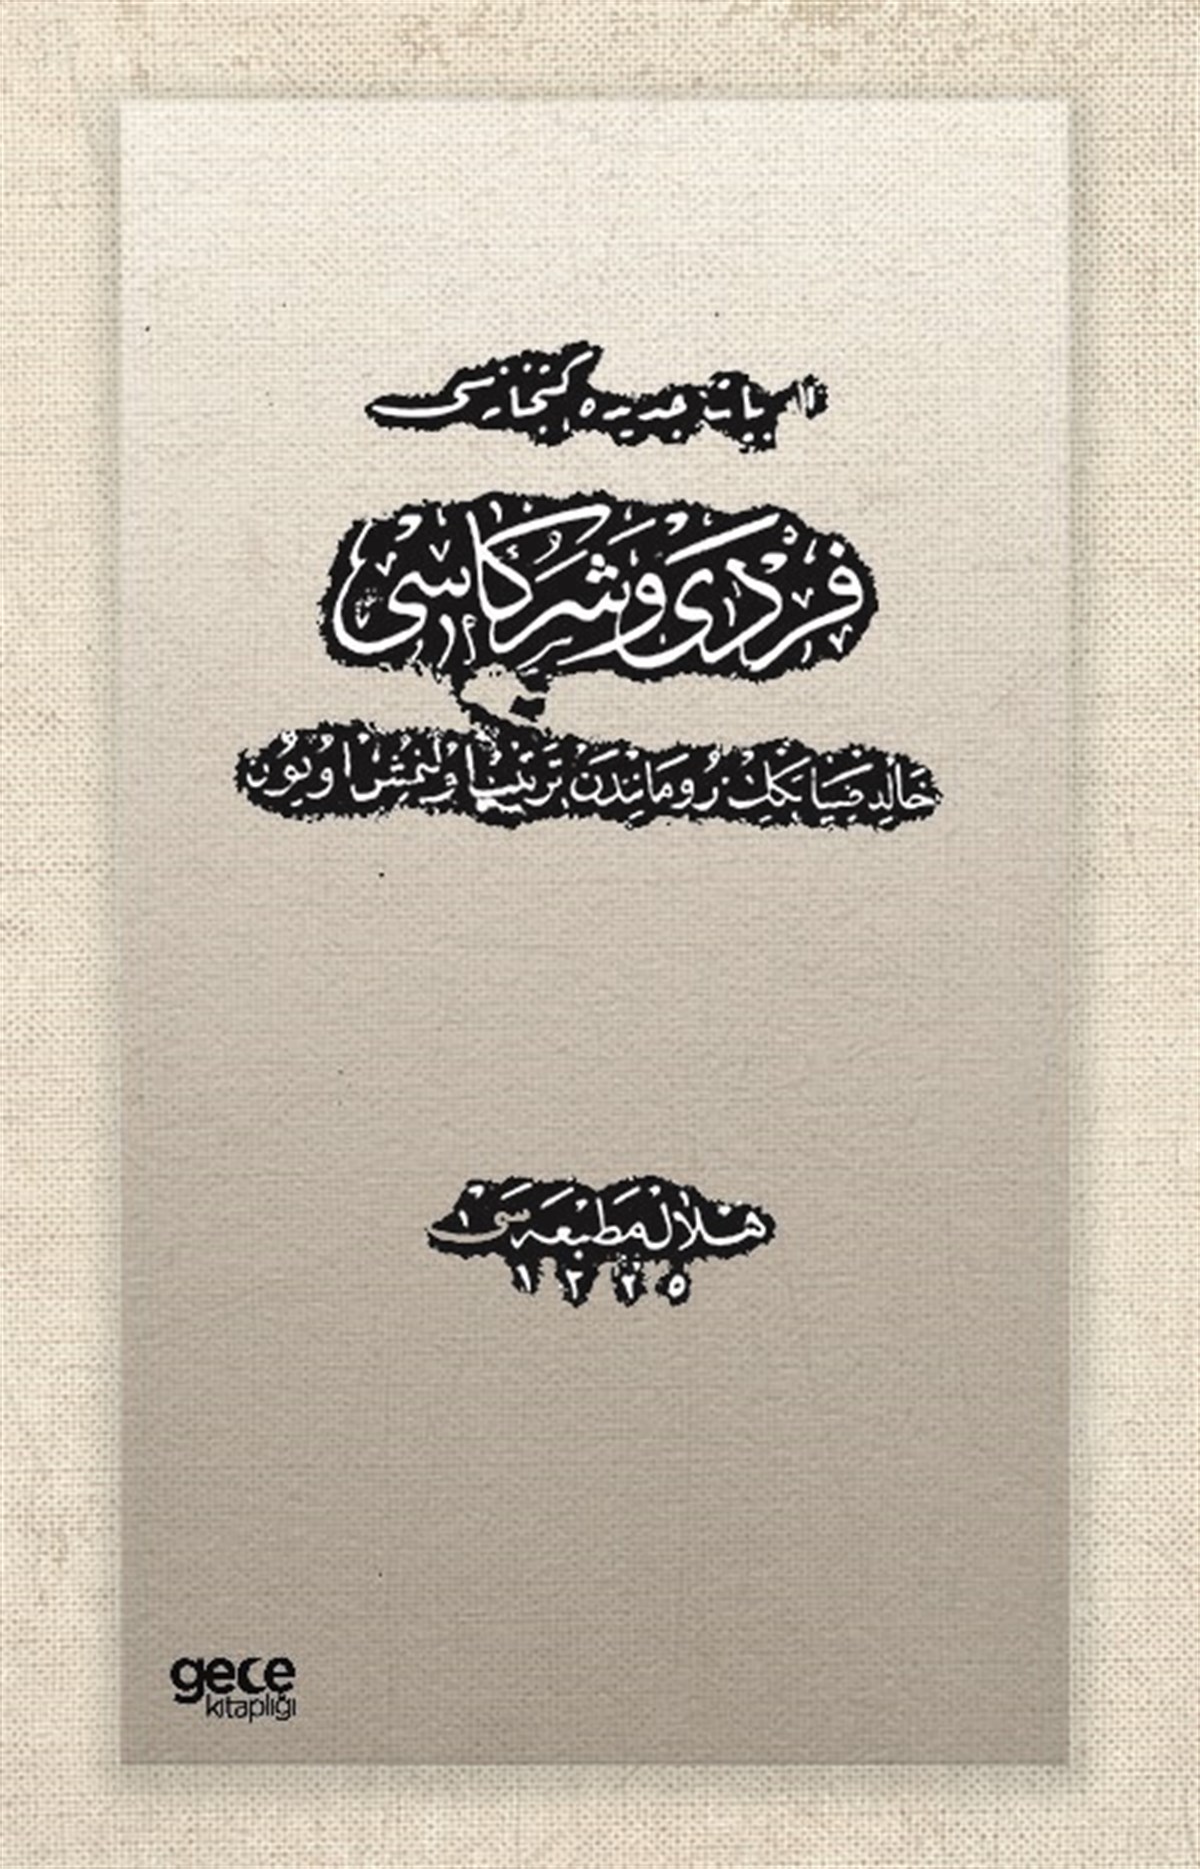 ادبیات جدیده کتبخانه‌سی
فِرْدَىْ وَ شُرَكَاسِى
خَالِد ضِيَا بَكِكْ رُومَانِنْدَنْ تَرْتِيبْ اُولُنْمُشْ اُويُونْ
هِلَالْ مَطْبَعَه‌سى
١٣٢٥
gece
kitaplığı